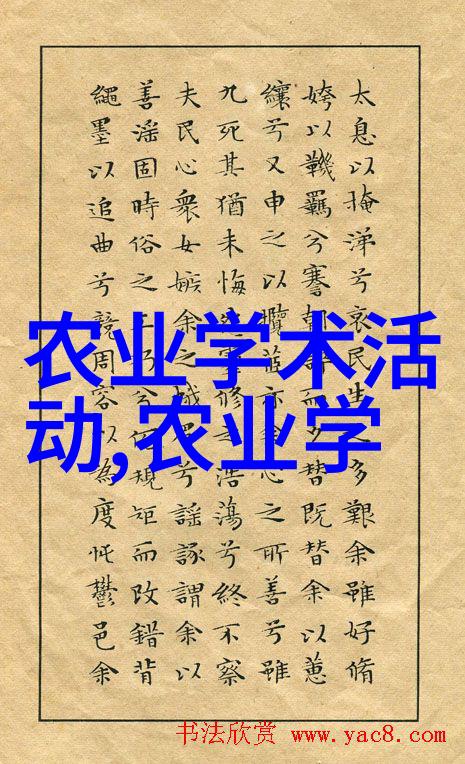 太息以掩涕兮哀民生之多艱余雖好脩
姱以鞿羈兮謇朝誶而夕替既替余以蕙
纕兮又申之以攬亦余心之所善兮雖
九死其猶未悔怨靈修之浩蕩兮終不察
夫民心衆女嫉余之蛾眉兮謠諑謂余以
善淫固時俗之工巧兮偭規矩而改錯背
繩墨以追曲兮競周容以為度忳鬱邑余
农业学术活
动,农业学
书法欣赏 www.yac8.com